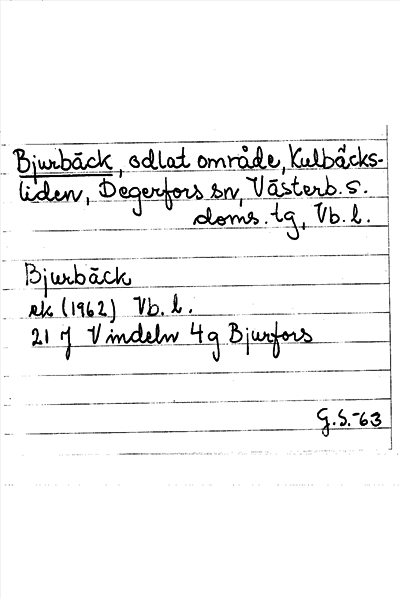 Bjurbäck, odlat område, Kulbäcks-
liden, Degerfors sn, Västerb. s.
doms. tg, Vb. l.
Bjurbäck
ek (1962) Vb. l.
21 J Vindeln 4g Bjurfors
G.S.-63